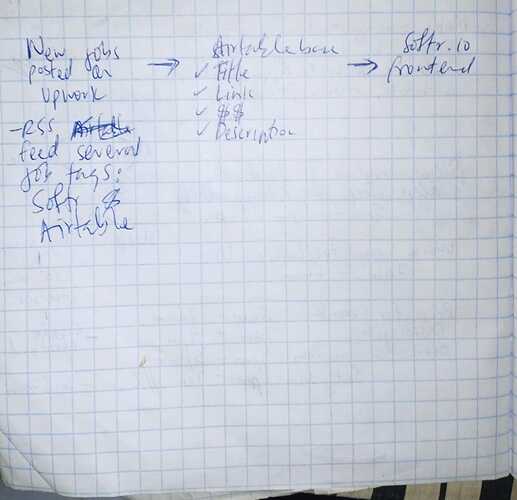 New jobs
posted on
Upwork
-RSS
feed several
job tags:
Softr &
Airtable
→
Airtable base
✓ Title
✓ Link
✓ $$
✓ Description
→
Softr.io
frontend